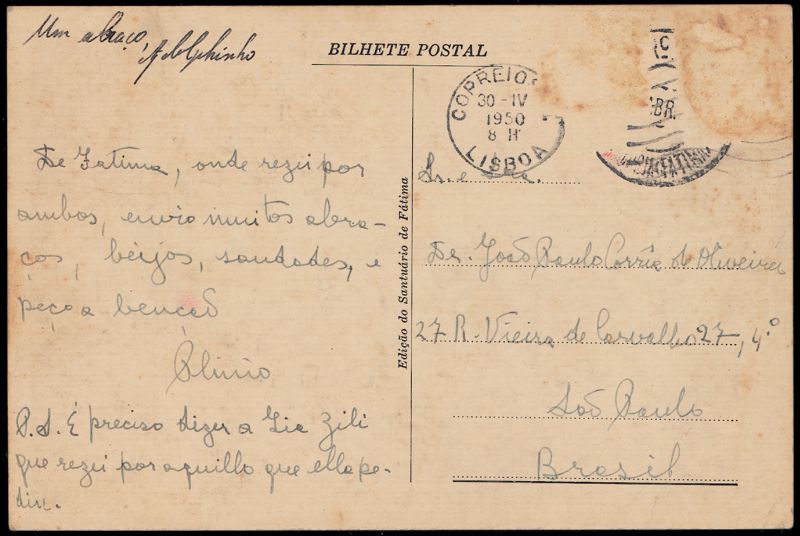 Um abraço,
Adolphinho
BILHETE POSTAL
CORREIOS
30-IV
1950
8 H
LISBOA
De Fatima, onde rezei por
ambos, envio muitos abra-
ços, beijos, saudades, e
peço a bencaõ
Plinio
P.S. É preciso dizer a Tia Zili
que rezei por aquillo que ella pe-
diu.
Edição do Santuário de Fátima
Sr. e
Dr. Joaõ Paulo Corrêa de Oliveira
27 R. Vieira de Carvalho 27, 4º
Saõ Paulo
Brasil